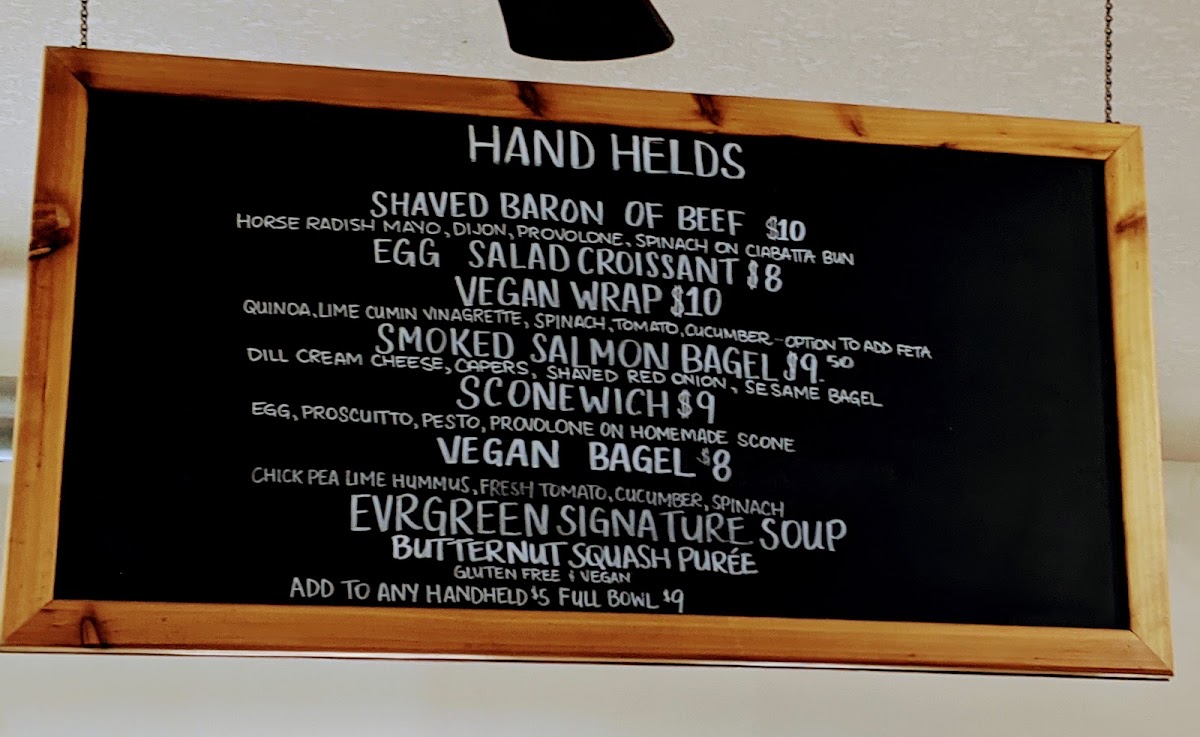 HAND HELDS
SHAVED BARON OF BEEF $10
HORSE RADISH MAYO, DIJON, PROVOLONE, SPINACH ON CIABATTA BUN
EGG SALAD CROISSANT $8
VEGAN WRAP $10
QUINOA, LIME CUMIN VINAGRETTE, SPINACH, TOMATO, CUCUMBER - OPTION TO ADD FETA
SMOKED SALMON BAGEL $9.50
DILL CREAM CHEESE, CAPERS, SHAVED RED ONION, SESAME BAGEL
SCONEWICH $9
EGG, PROSCUITTO, PESTO, PROVOLONE ON HOMEMADE SCONE
VEGAN BAGEL $8
CHICK PEA LIME HUMMUS, FRESH TOMATO, CUCUMBER, SPINACH
EVRGREEN SIGNATURE SOUP
BUTTERNUT SQUASH PURÉE
GLUTEN FREE & VEGAN
ADD TO ANY HANDHELD $5 FULL BOWL $9